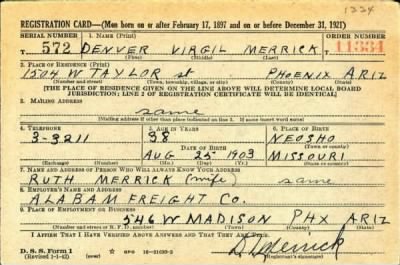 1224
REGISTRATION CARD—(Men born on or after February 17, 1897 and on or before December 31, 1921)
SERIAL NUMBER 1. NAME (Print) ORDER NUMBER
T 572 DENVER VIRGIL MERRICK 11334
(First) (Middle) (Last)
2. PLACE OF RESIDENCE (Print)
1504 W TAYLOR st PHOENIX ARIZ
(Number and street) (Town, township, village, or city) (County) (State)
[THE PLACE OF RESIDENCE GIVEN ON THE LINE ABOVE WILL DETERMINE LOCAL BOARD
JURISDICTION; LINE 2 OF REGISTRATION CERTIFICATE WILL BE IDENTICAL]
3. MAILING ADDRESS
same
[Mailing address if other than place indicated on line 2. If same insert word same]
4. TELEPHONE 5. AGE IN YEARS 6. PLACE OF BIRTH
3-3211 38 NEOSHO
DATE OF BIRTH (Town or county)
AUG 25 1903 MISSOURI
(Exchange) (Number) (Mo.) (Day) (Yr.) (State or country)
7. NAME AND ADDRESS OF PERSON WHO WILL ALWAYS KNOW YOUR ADDRESS
RUTH MERRICK (wife) same
8. EMPLOYER'S NAME AND ADDRESS
ALABAM FREIGHT CO.
9. PLACE OF EMPLOYMENT OR BUSINESS
546 W MADISON PHX ARIZ
(Number and street or R. F. D. number) (Town) (County) (State)
I AFFIRM THAT I HAVE VERIFIED ABOVE ANSWERS AND THAT THEY ARE TRUE.
D. S. S. Form 1
(Revised 1-1-42) (over)
(Registrant's signature)